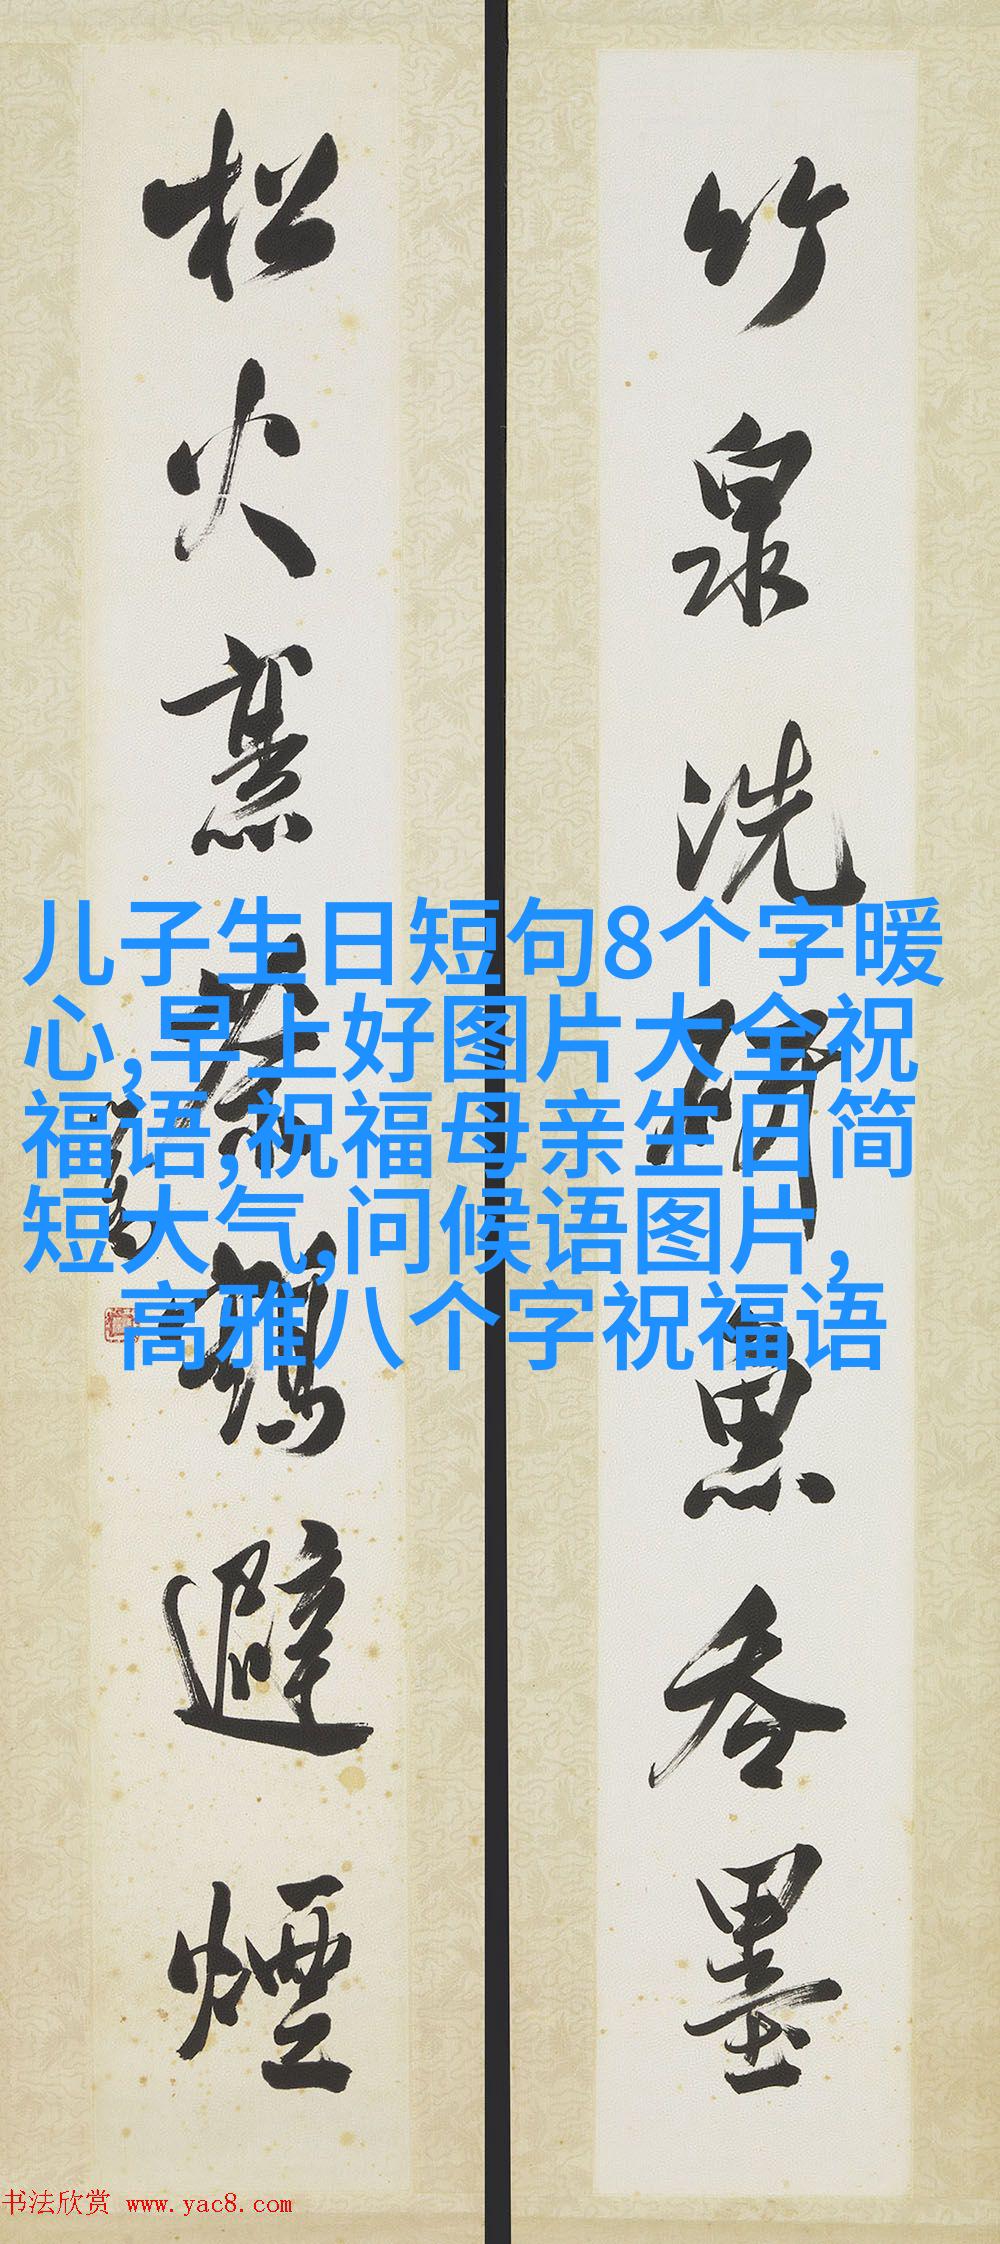 竹泉洗硯魚吞墨
松火茶鶴避煙
儿子生日短句8个字暖
心,早上好图片大全祝
福语,祝福母亲生日简
短大气,问候语图片,
高雅八个字祝福语
书法欣赏 www.yac8.com